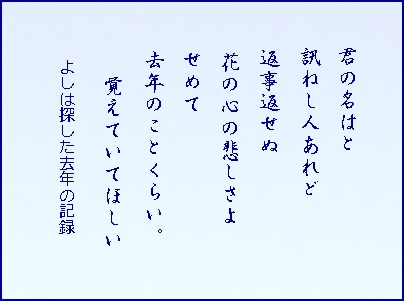 君の名はと
訊ねし人あれど
返事返せぬ
花の心の悲しさよ
せめて
去年のことくらい。
覚えていてほしい
よしは探した去年の記録